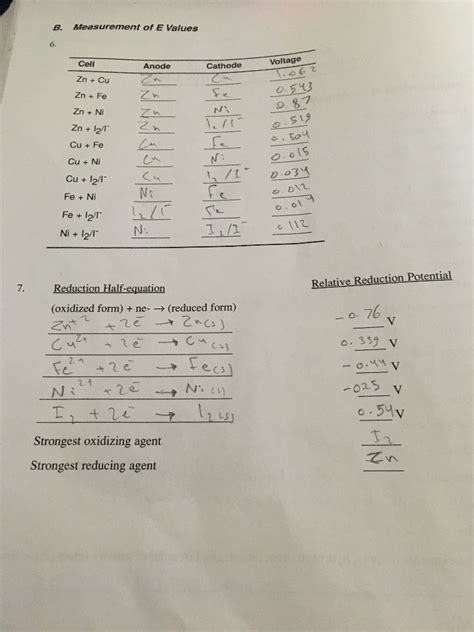 B. Measurement of E Values
6.
Cell Anode Cathode Voltage
Zn + Cu Zn Cu 1.062
Zn + Fe Zn Fe 0.543
Zn + Ni Zn Ni 0.87
Zn + I2/I⁻ Zn I2/I⁻ 0.519
Cu + Fe Cu Fe 0.504
Cu + Ni Cu Ni 0.015
Cu + I2/I⁻ Cu I2/I⁻ 0.034
Fe + Ni Ni Fe 0.012
Fe + I2/I⁻ I2/I⁻ Fe 0.019
Ni + I2/I⁻ Ni I2/I⁻ 0.112
7. Reduction Half-equation Relative Reduction Potential
(oxidized form) + ne- → (reduced form)
Zn⁺² + 2e⁻ → Zn(s) -0.76 V
Cu²⁺ + 2e⁻ → Cu(s) 0.339 V
Fe²⁺ + 2e⁻ → Fe(s) -0.44 V
Ni²⁺ + 2e⁻ → Ni(s) -025 V
I2 + 2e⁻ → I2(s) 0.54 V
Strongest oxidizing agent I2
Strongest reducing agent Zn